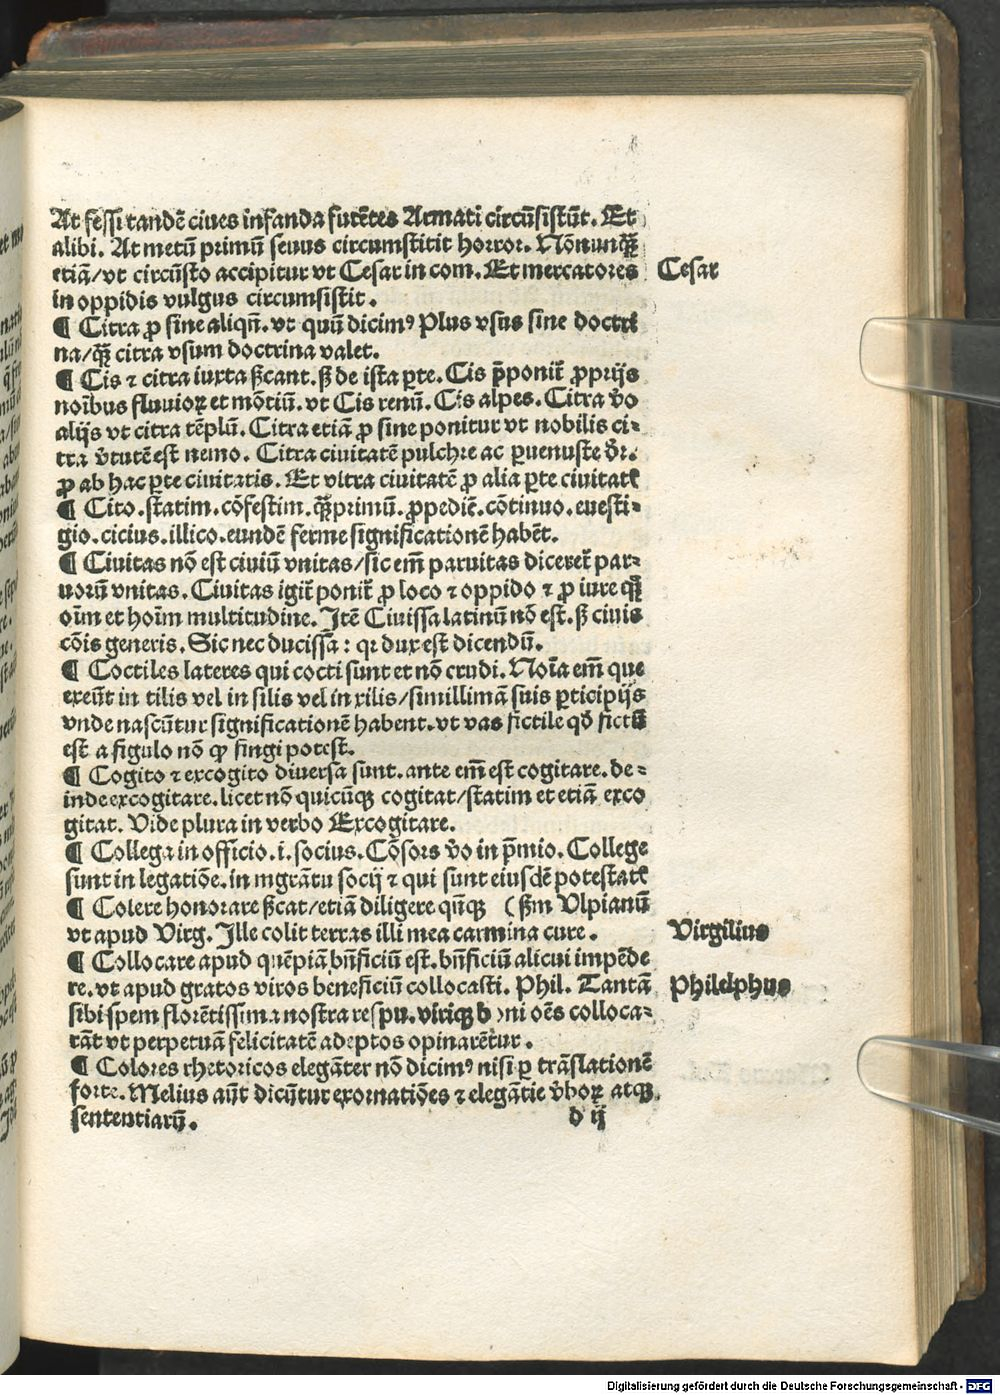 At fessi tandē ciues infanda furētes Armati circūsistūt. Et
alibi. At metū primū seuus circumstitit horror. Nōnunq̄ꝫ
etiā/vt circūsto accipitur vt Cesar in com. Et mercatores
Cesar
in oppidis vulgus circumsistit.
¶ Citra ꝓ sine aliqn̄. vt quū dicimꝰ Plus vsus sine doctri
na/q̄ꝫ citra vsum doctrina valet.
¶ Cis ⁊ citra iuxta ẞcant. ẞ de ista ꝑte. Cis p̄ponit᷑ ꝓprijs
noībus fluuioꝝ et mōtiū. vt Cis renū. Cis alpes. Citra v̄o
alijs vt citra tēplū. Citra etiā ꝓ sine ponitur vt nobilis ci⸗
tra v̄tutē est nemo. Citra ciuitatē pulchre ac ꝑuenuste d̄r.
ꝓ ab hac ꝑte ciuitatis. Et vltra ciuitatē ꝓ alia ꝑte ciuitatꝭ
¶ Cito. statim. cōfestim. q̄ꝫprimū. ꝓpediē. cōtinuo. euesti⸗
gio. cicius. illico. eundē ferme significationē habēt.
¶ Ciuitas nō est ciuiū vnitas/sic em̄ paruitas diceret᷑ par⸗
uorū vnitas. Ciuitas igit᷑ ponit᷑ ꝓ loco ⁊ oppido ⁊ ꝓ iure q̄ꝫ
oīm et hoīm multitudine. Itē Ciuissa latinū nō est. ẞ ciuis
cōis generis. Sic nec ducissa: qꝛ dux est dicendū.
¶ Coctiles lateres qui cocti sunt et nō crudi. Noīa em̄ que
exeūt in tilis vel in silis vel in xilis/simillimā suis ꝑticipijs
vnde nascūtur significationē habent. vt vas fictile qd̄ fictū
est a figulo nō ꝙ fingi potest.
¶ Cogito ⁊ excogito diuersa sunt. ante em̄ est cogitare. de⸗
inde excogitare. licet nō quicūqꝫ cogitat/statim et etiā exco
gitat. Vide plura in verbo Excogitare.
¶ Collega in officio. i. socius. Cōsors v̄o in p̄mio. College
sunt in legatiōe. in mgrātu socij ⁊ qui sunt eiusdē potestatꝭ
¶ Colere honorare ẞcat/etiā diligere qn̄qꝫ (ẞm Vlpianū
vt apud Virg. Ille colit terras illi mea carmina cure.
Virgilius
¶ Collocare apud quēpiā bn̄ficiū est. bn̄ficiū alicui impēde
re. vt apud gratos viros beneficiū collocasti. Phil. Tantā
Philelphus
sibi spem florētissima nostra respu. viriqꝫ boni oēs colloca⸗
rāt vt perpetuam felicitatē adeptos opinarētur.
¶ Colores rhetoricos elegāter nō dicimꝰ nisi ꝑ trāslationē
forte. Melius aūt dicūtur exornatiōes ⁊ elegātie v̄boꝝ atqꝫ
sententiarū.
d ij
Digitalisierung gefördert durch die Deutsche Forschungsgemeinschaft - DFG